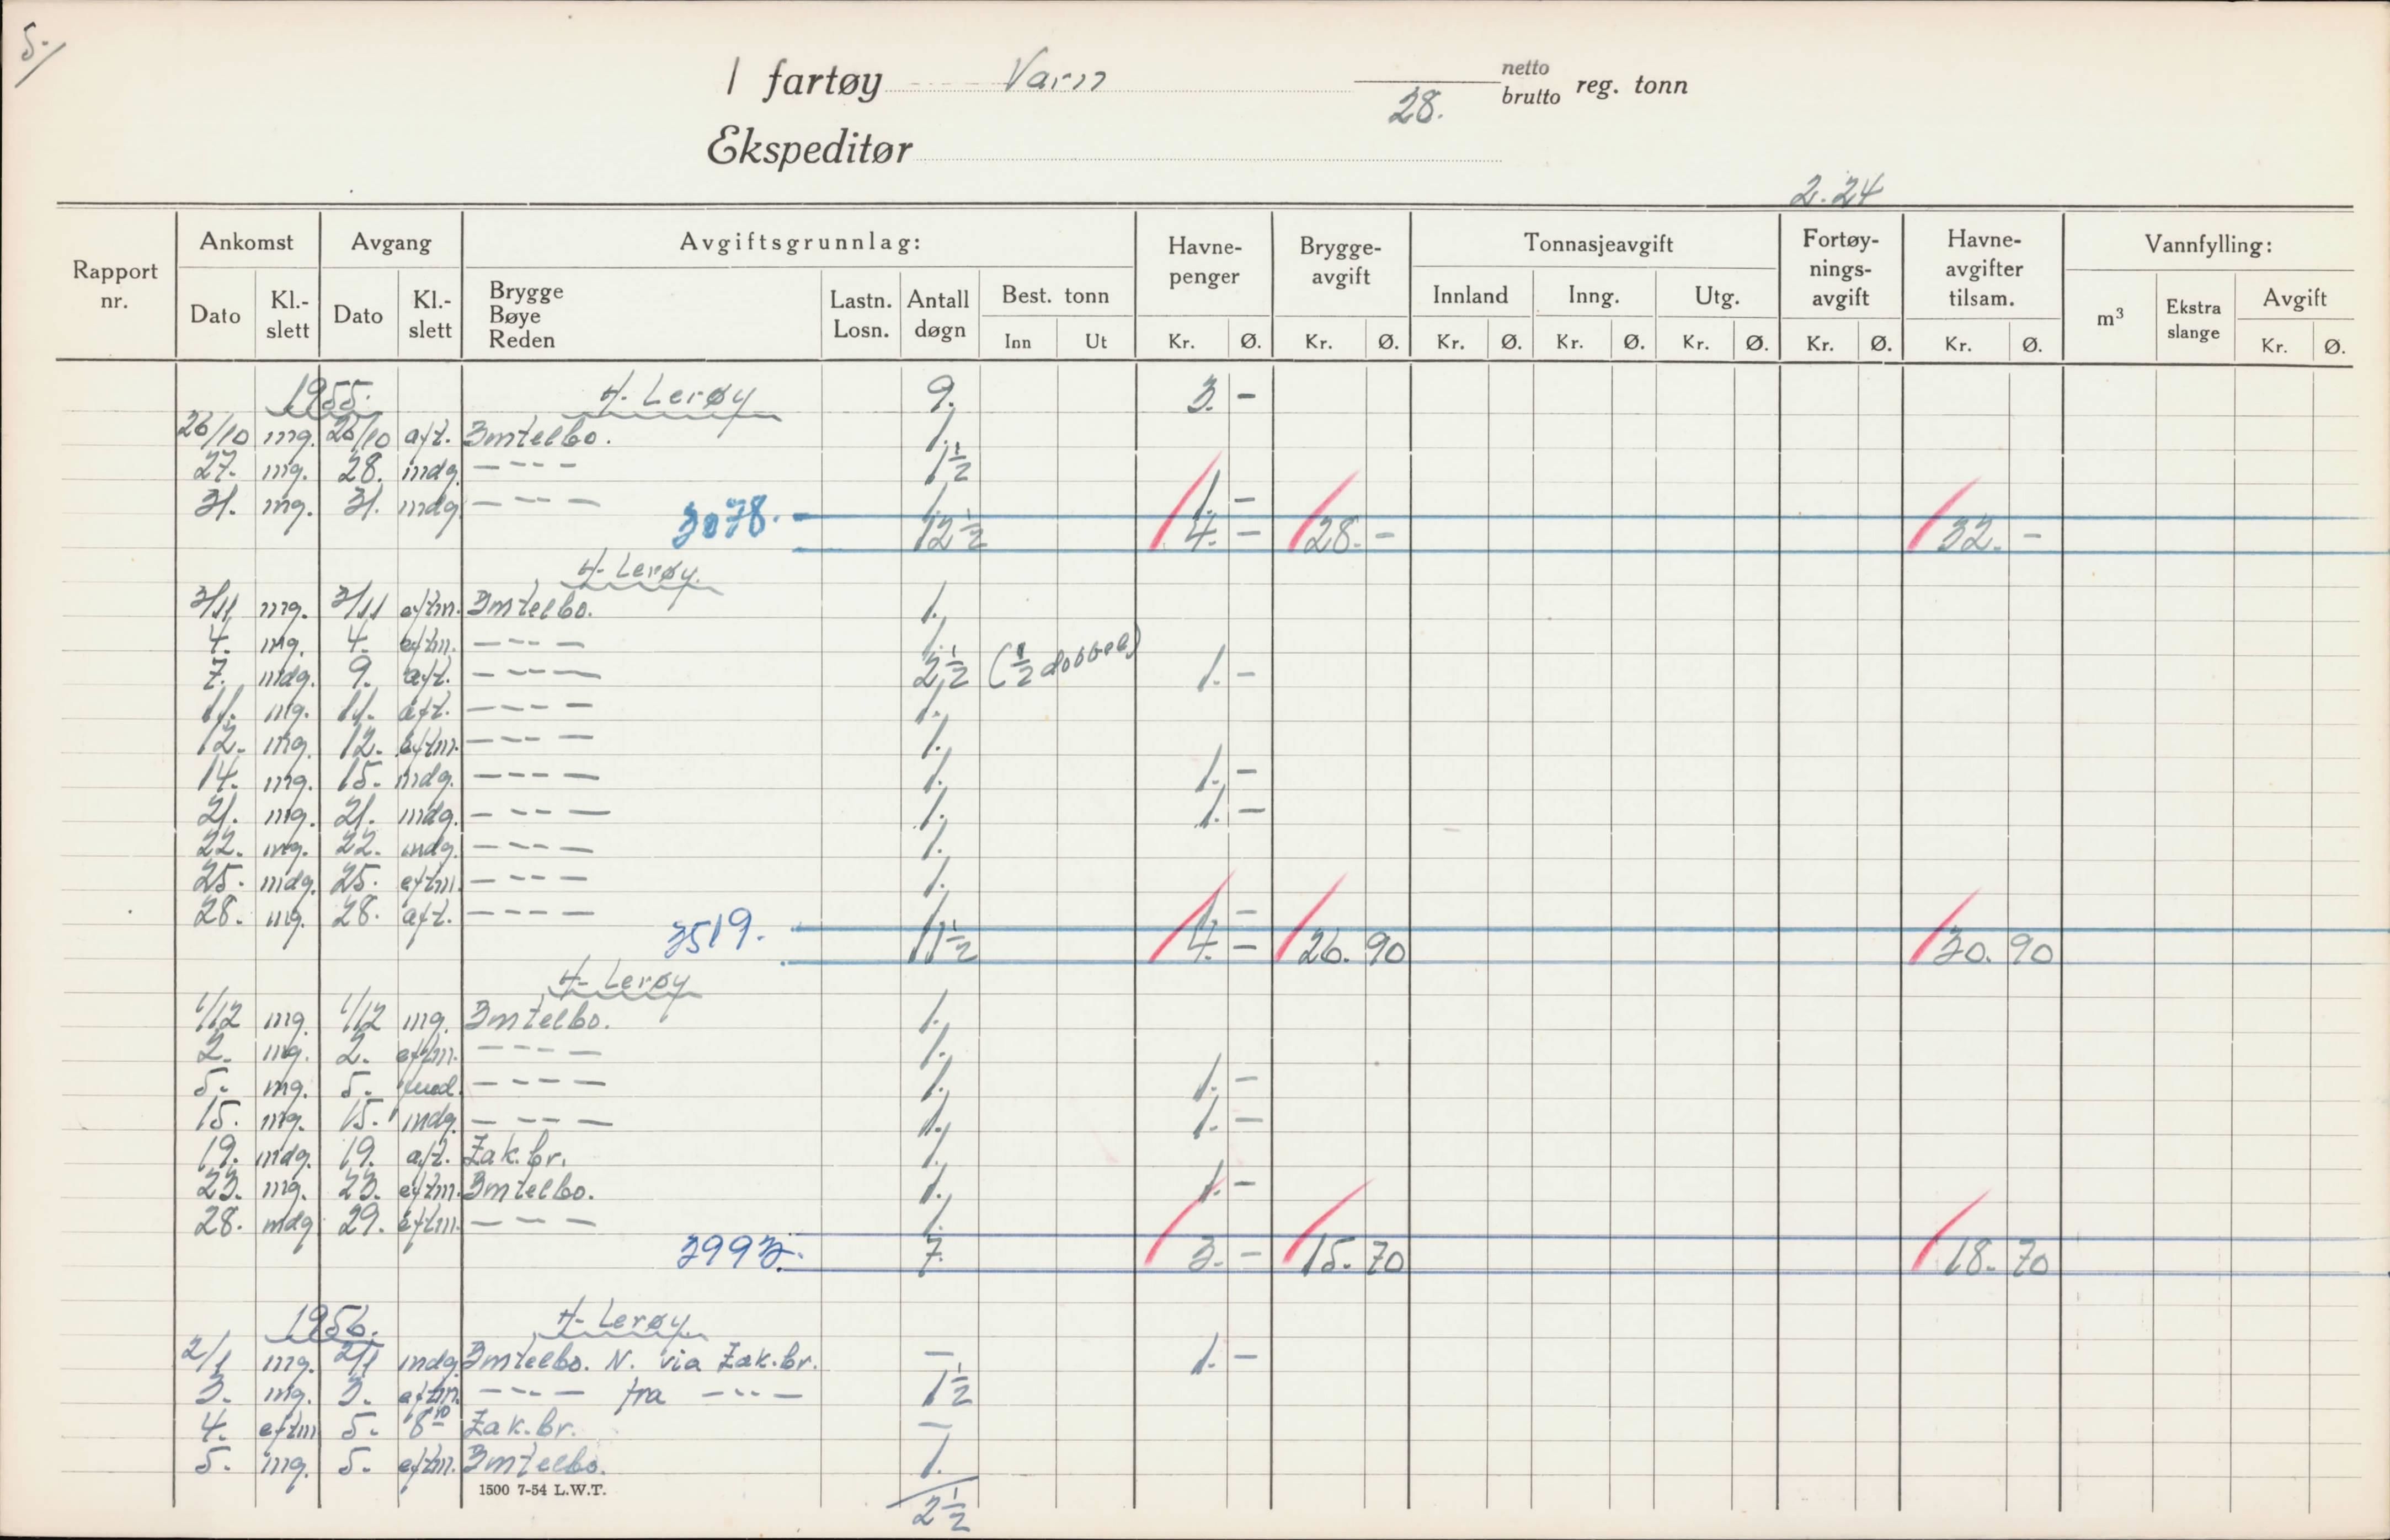 5.
1 fartøy Varn netto
28. brutto reg. tonn
Ekspeditør
2.24
Rapport nr. Ankomst Avgang Avgiftsgrunnlag: Havne-penger Brygge-avgift Tonnasjeavgift Fortøy-nings-avgift Havne-avgifter tilsam. Vannfylling:
Dato Kl.-slett Dato Kl.-slett Brygge Bøye Reden Lastn. Losn. Antall døgn Best. tonn Innland Inng. Utg. m³ Ekstra slange Avgift
Inn Ut Kr. Ø. Kr. Ø. Kr. Ø. Kr. Ø. Kr. Ø. Kr. Ø. Kr. Ø. Kr. Ø.
1955. H. Lerøy 9. 3. -
26/10 mg. 26/10 aft. 1.
27. mg. 28. mdg. - - - - 1 1/2
31. mg. 31. mdg. - - - - 1. 1. -
3078. 12 1/2 4. - 28. - 32. -
H. Lerøy.
3/11 mg. 3/11 eftm. 1.
4. mg. 4. eftm. - - - - 1.
7. mdg. 9. aft. - - - - 2 1/2 (1/2 dobbel) 1. -
11. mg. 11. aft. - - - - 1.
12. mg. 12. eftm. - - - - 1.
14. mg. 15. mdg. - - - - 1. 1. -
21. mg. 21. mdg. - - - - 1. 1. -
22. mg. 22. mdg. - - - - 1.
25. mdg. 25. eftm. - - - - 1.
28. mg. 28. aft. - - - - 1. 1. -
3519. 11 1/2 4. - 26. 90 30. 90
H. Lerøy
1/12 mg. 1/12 mg. 1.
2. mg. 2. eftm. - - - - 1.
5. mg. 5. - - - - 1. 1. -
15. mg. 15. mdg. - - - - 1. 1. -
19. mdg. 19. aft. Zak. br. 1.
23. mg. 23. eftm. 1. 1. -
28. mdg 29. eftm. - - - 1.
3993. 7. 3. - 15. 70 18. 70
1956. H. Lerøy
2/1 mg. 2/1 mdg. N. via Zak. br. - 1. -
3. mg. 3. eftm. - - - - fra - - - - 1 1/2
4. eftm 5. 8 Zak. br. -
5. mg. 5. eftm. 1.
1500 7-54 L.W.T.
2 1/2